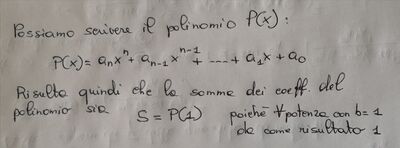 Possiamo scrivere il polinomio P(x):
P(x) = aₙxⁿ + aₙ₋₁xⁿ⁻¹ + ---- + a₁x + a₀
Risulta quindi che la somma dei coeff. del
polinomio sia S = P(1) poiché ∀ potenza con b = 1
da come risultato 1